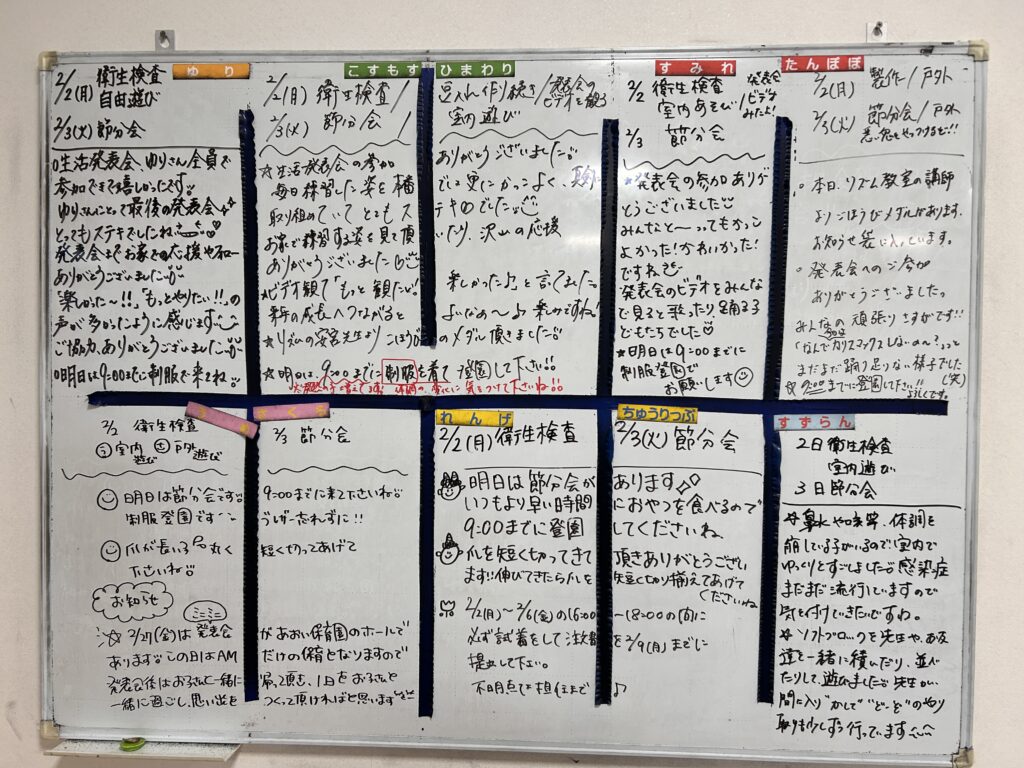 ゆり
2/2(月) 衛生検査
自由遊び
2/3(火) 節分会
○生活発表会、ゆりさん全員で
参加できて嬉しかったです
ゆりさんにとって最後の発表会
とってもステキでしたね
発表会までお家での応援や
ありがとうございました
"楽しかった〜!!""もっとやりたい!!"の
声が多かったように感じます
ご協力、ありがとうございました
○明日は9:00までに制服で来てね
こすもす
ひまわり
2/2(月) 衛生検査/豆入れ作り続き/発表会のビデオを観る
室内遊び
2/3(火) 節分会 /
☆生活発表会の参加 ありがとうございました
毎日練習した姿を本番でも更にかっこよく、
取り組めていてとてもステキでした
お家で練習する姿を見て頂いたり、沢山の応援
ありがとうございました
★ビデオ観て「もっと観たい! 楽しかった♪」と言ってました
来年の成長へつながるとよいなぁ〜♪ 楽しみですね!
のメダル頂きました
★明日は、9:00までに制服を着て登園して下さい!!
気をつけて下さいね
すみれ
2/2 衛生検査
室内あそび/発表会ビデオみたよ!
2/3 節分会
発表会の参加ありが
とうございました
みんなと〜ってもかっこ
よかった!かわいかった!
ですね
発表会のビデオをみんな
で見ると歌ったり、踊る子
どもたちでした
★明日は9:00までに
制服登園で
お願いします
たんぽぽ
2/2(月) 製作/戸外
2/3(火) 節分会/戸外
○本日、リズム教室の講師
よりごほうびメダルがあります。
お知らせ袋に入っています。
○発表会へのご参加
ありがとうございましたっ
みんなの頑張りさすがです!!
まだまだ踊り足りない様子でした(笑)
☆9:00までに登園して下さい!!
よろしくです。
さくら
2/2 衛生検査
室内遊び 戸外遊び
2/3 節分会
明日は節分会です 9:00までに来て下さいね
制服登園です
爪が長い子 丸く短く切ってあげて
下さいね
お知らせ
☆2/27(金)は ミニミニ発表会があおい保育園のホールで
あります この日はAMだけの保育となりますので
発表会後はお子さんと一緒に帰って頂き、1日をお子さんと
一緒に過ごし、思い出をつくって頂ければと思います
れんげ
ちゅうりっぷ
2/2(月) 衛生検査 2/3(火) 節分会
明日は節分会があります
いつもより早い時間におやつを食べるので
9:00までに登園してくださいね
爪を短く切ってきて頂きありがとうござい
ます!!伸びてきたら爪を短く切り揃えてあげて
くださいね
2/2(月)〜2/6(金)の16:00〜18:00の間に
必ず試着をして注文書を2/9(月)までに
提出して下さい。
不明点は担任まで♪
すずらん
2日 衛生検査
室内遊び
3日 節分会
☆鼻水や咳等、体調を
崩している子がいるので室内で
ゆっくりとすごしました 感染症
まだまだ流行していますので
気を付けていきたいですね。
☆ソフトブロックを先生や、お友
達と一緒に積んだり、並べ
たりして、遊びました 先生が
間に入り"かして""どーぞ"のやり
取りも少しずつ行っています